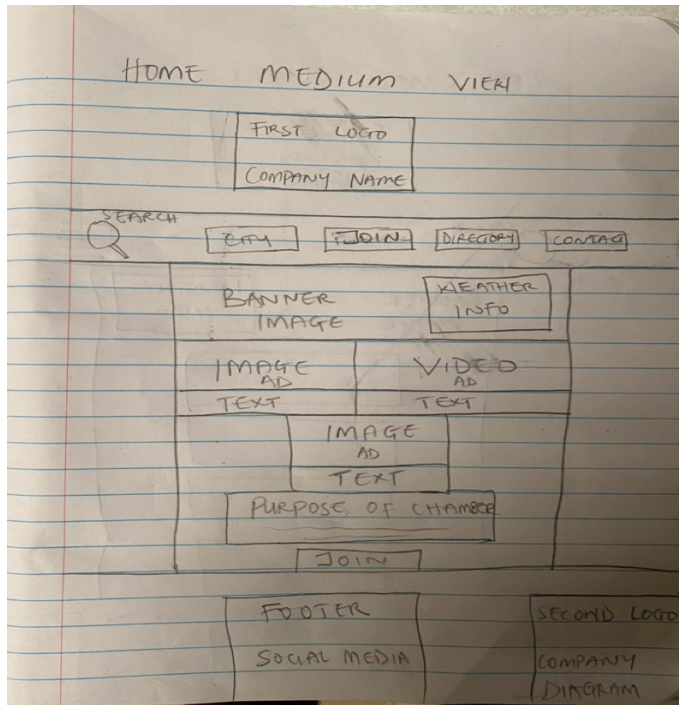 HOME MEDIUM VIEW
FIRST LOGO
COMPANY NAME
SEARCH
CITY JOIN DIRECTORY CONTACT
BANNER IMAGE
WEATHER INFO
IMAGE AD
VIDEO AD
TEXT TEXT
IMAGE
AD
TEXT
PURPOSE OF CHAMBER
JOIN
FOOTER
SOCIAL MEDIA
SECOND LOGO
COMPANY
DIAGRAM